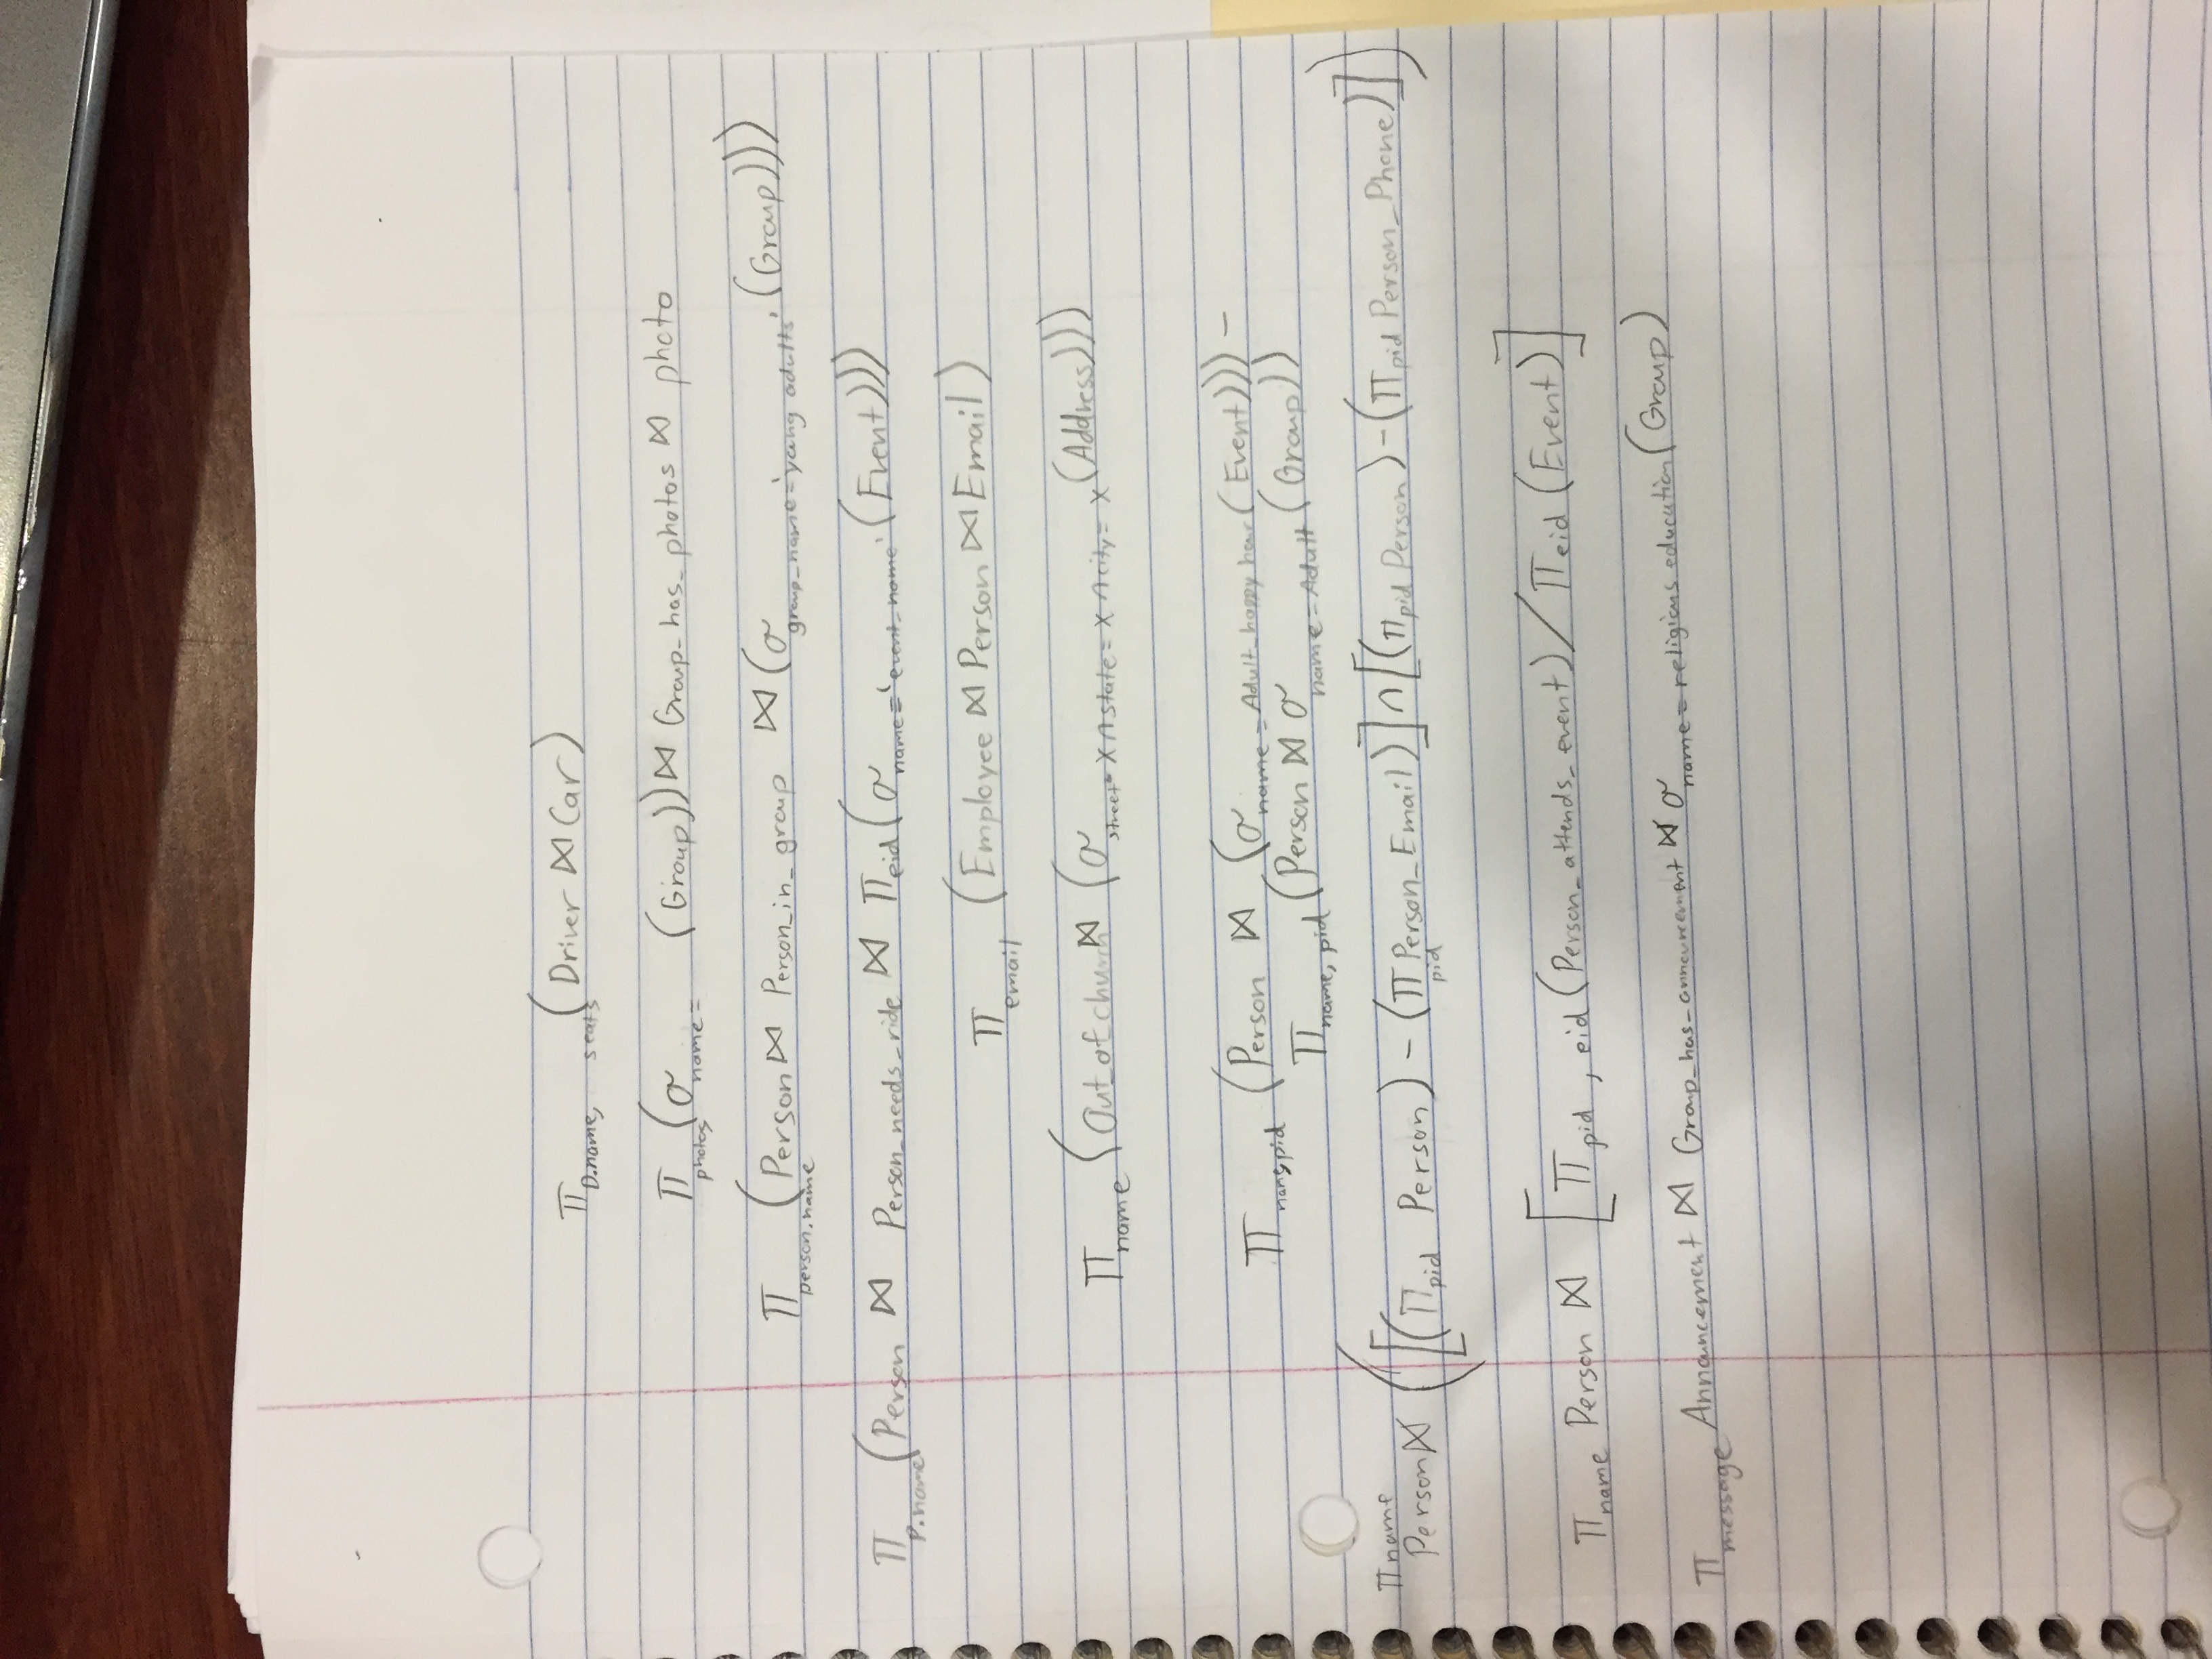 π D.name, seats (Driver ⋈ Car)
π photos (σ name= (Group)) ⋈ Group_has_photos ⋈ photo
π person.name (Person ⋈ Person_in_group ⋈ (σ group_name='young adults' (Group)))
π P.name (Person ⋈ Person_needs_ride ⋈ π eid (σ name='event_name' (Event)))
π email (Employee ⋈ Person ⋈ Email)
π name (Out_of_church ⋈ (σ street=X ∧ state=X ∧ city=X (Address)))
π name,pid (Person ⋈ (σ name=Adult_happy hour (Event))) −
π name, pid (Person ⋈ σ name=Adult (Group))
π name Person ⋈ ([(π pid Person) − (π pid Person_Email)] ∩ [(π pid Person) − (π pid Person_Phone)])
π name Person ⋈ [π pid, eid (Person_attends_event) / π eid (Event)]
π message Announcement ⋈ Group_has_announcement ⋈ σ name=religious education (Group)